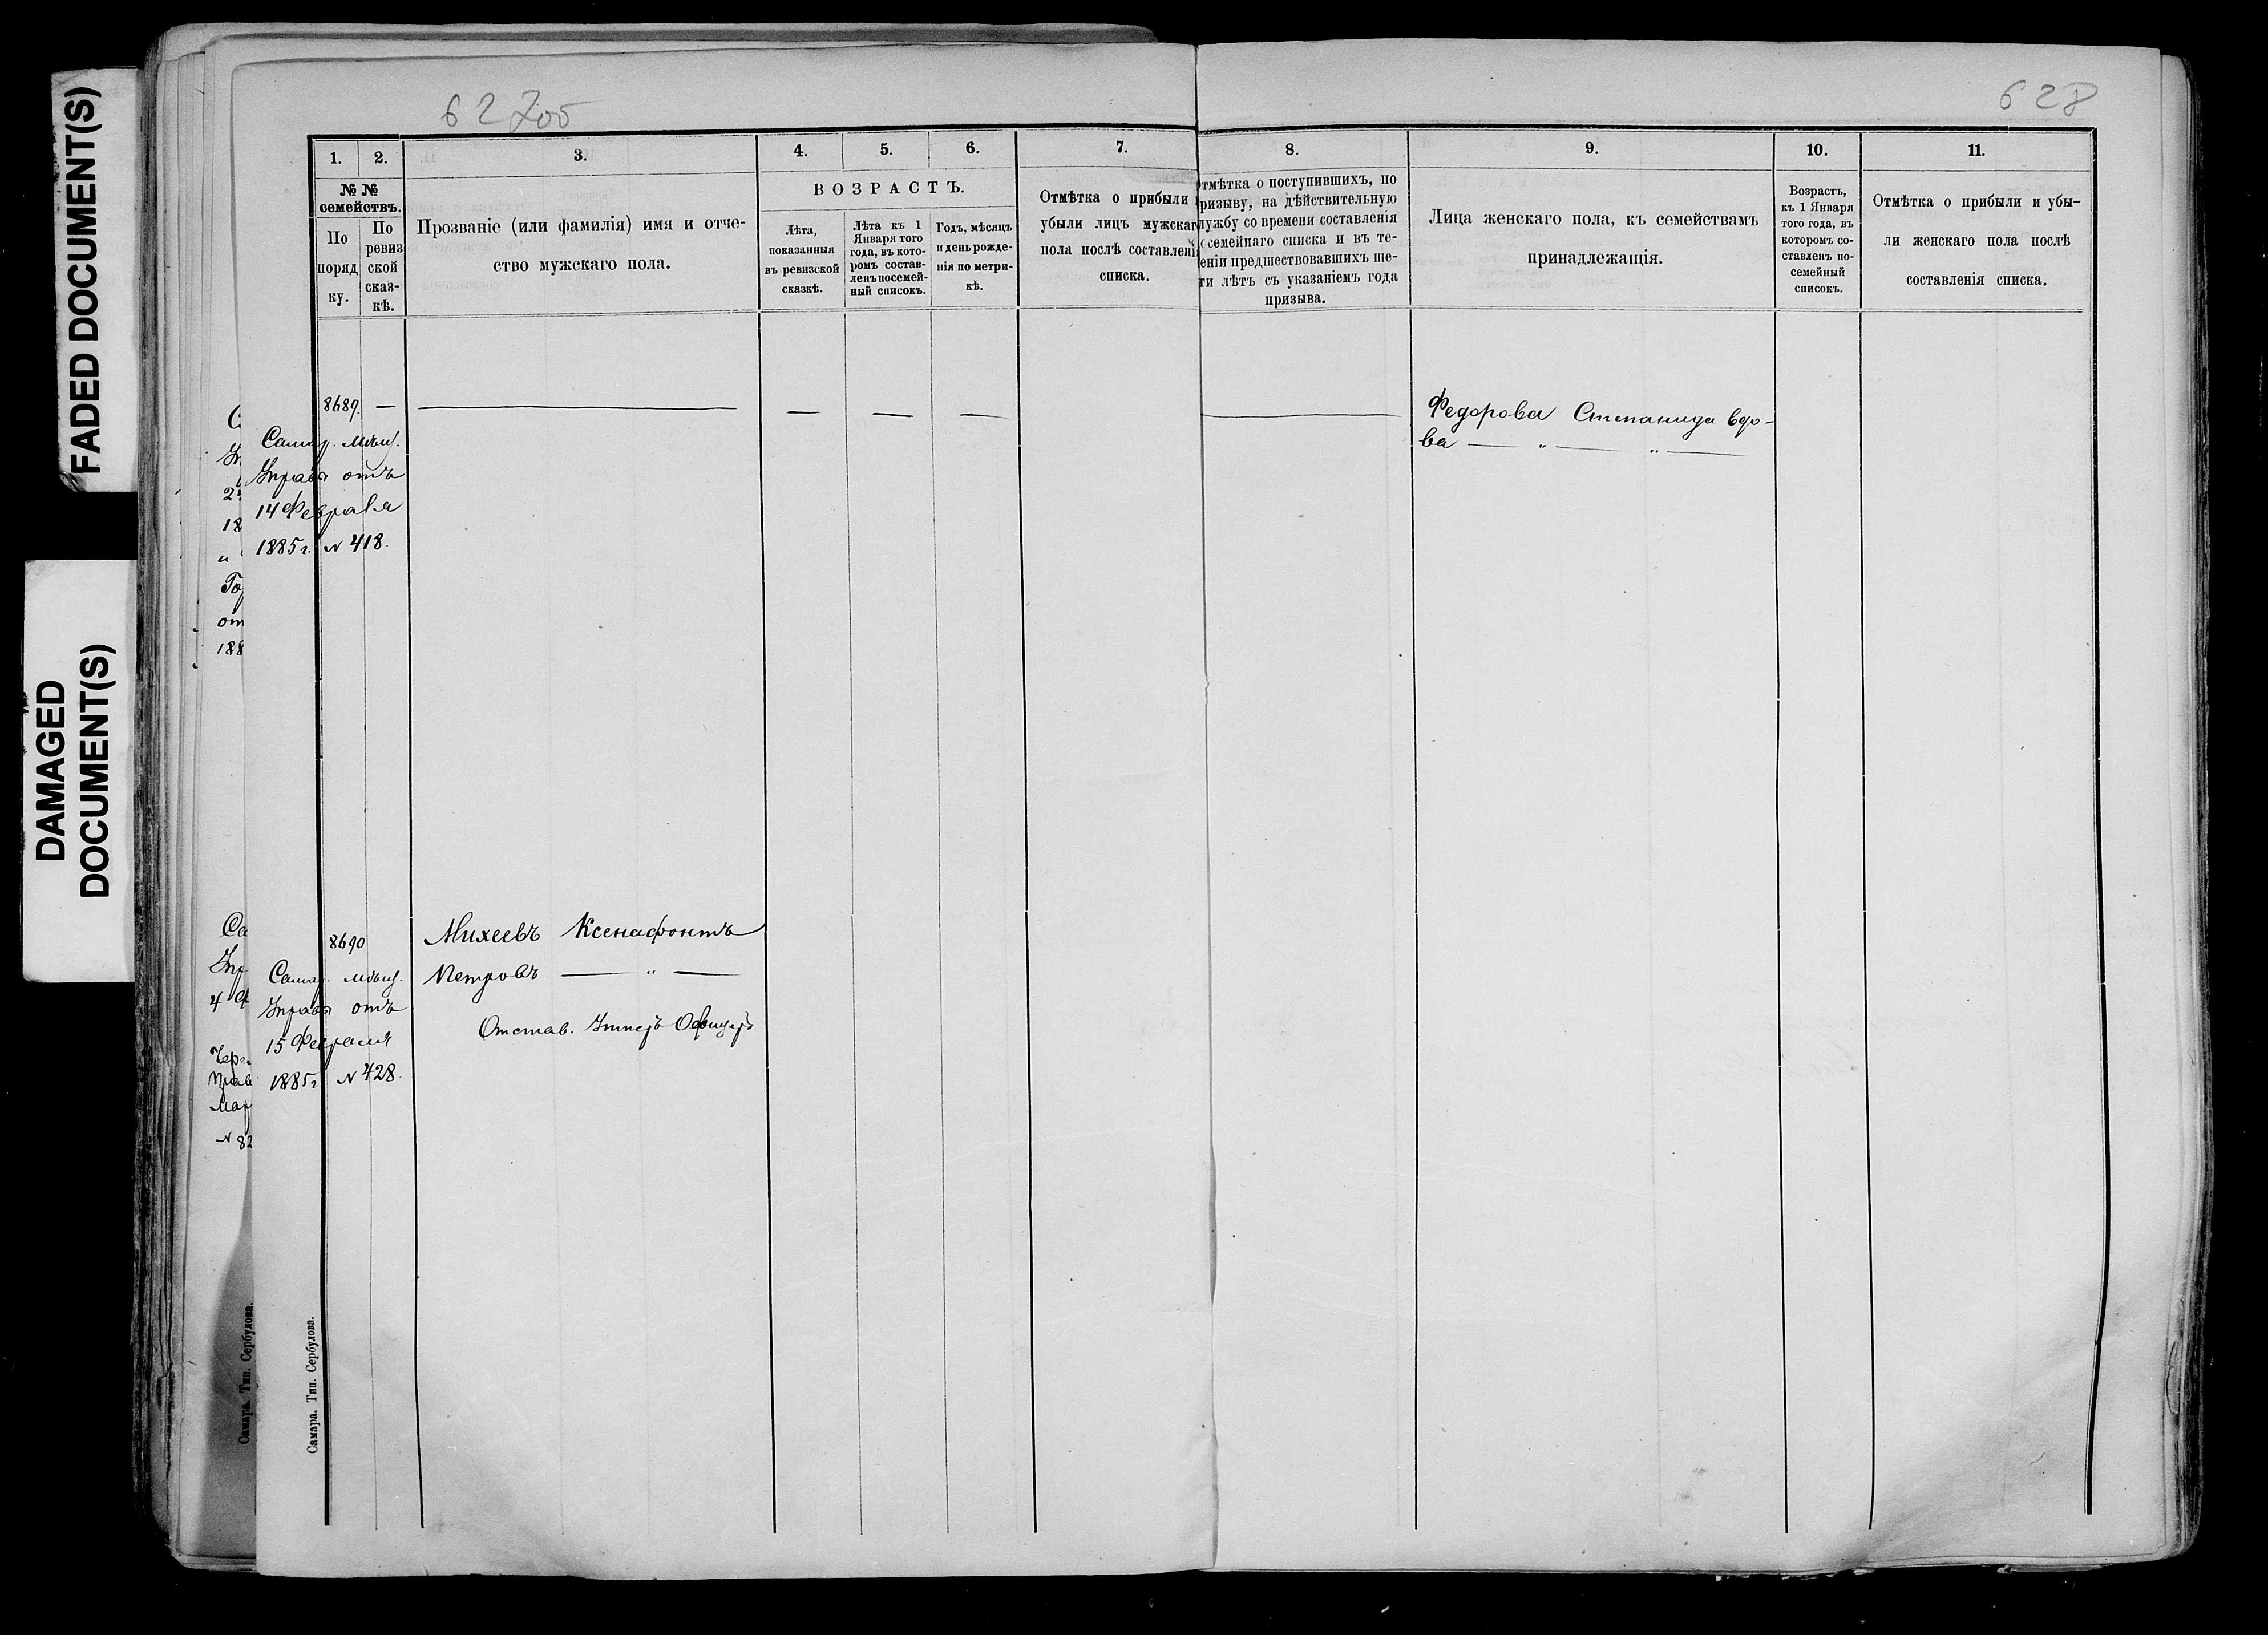 FADED DOCUMENT(S)
DAMAGED
DOCUMENT(S)
62 об
628
1.
2.
3.
4.
5.
6.
7.
8.
9.
10.
11.
№ №
семействъ.
По
поряд
ку.
По
ревиз
ской
сказ-
кѣ.
Прозваніе (или фамилія) имя и отче-
ство мужскаго пола.
ВОЗРАСТЪ.
Лѣта,
показанныя
въ ревизской
сказкѣ.
Лѣта къ 1
Января того
года, въ кото-
ромъ состав-
ленъ посемей-
ный списокъ.
Годъ, мѣсяцъ
и день рожде-
нія по метри-
кѣ.
Отмѣтка о прибыли
убыли лицъ мужскаг
пола послѣ составлені
списка.
тмѣтка о поступившихъ, по
ризыву, на дѣйствительную
лужбу со времени составленія
осемейнаго списка и въ те-
еніи предшествовавшихъ ше-
ти лѣтъ съ указаніемъ года
призыва.
Лица женскаго пола, къ семействамъ
принадлежащія.
Возрастъ,
къ 1 Января
того года, въ
которомъ со-
ставленъ по-
семейный
списокъ.
Отмѣтка о прибыли и убы-
ли женскаго пола послѣ
составленія списка.
8689. —
Самар. Мѣщ.
Управы отъ
14 Февраля
1885 г. N 418.
Федорова Степанида вдо-
ва — „ — „ —
8690
Самар. Мѣщ.
Управы отъ
15 Февраля
1885 г. N 428.
Михеевъ Ксенафонтъ
Петровъ — „ —
Отстав. Унтеръ Офицеръ
Са
Упр
4 Ф
N 82
188
Самара. Тип. Сербулова.
Самара. Тип. Сербулова.